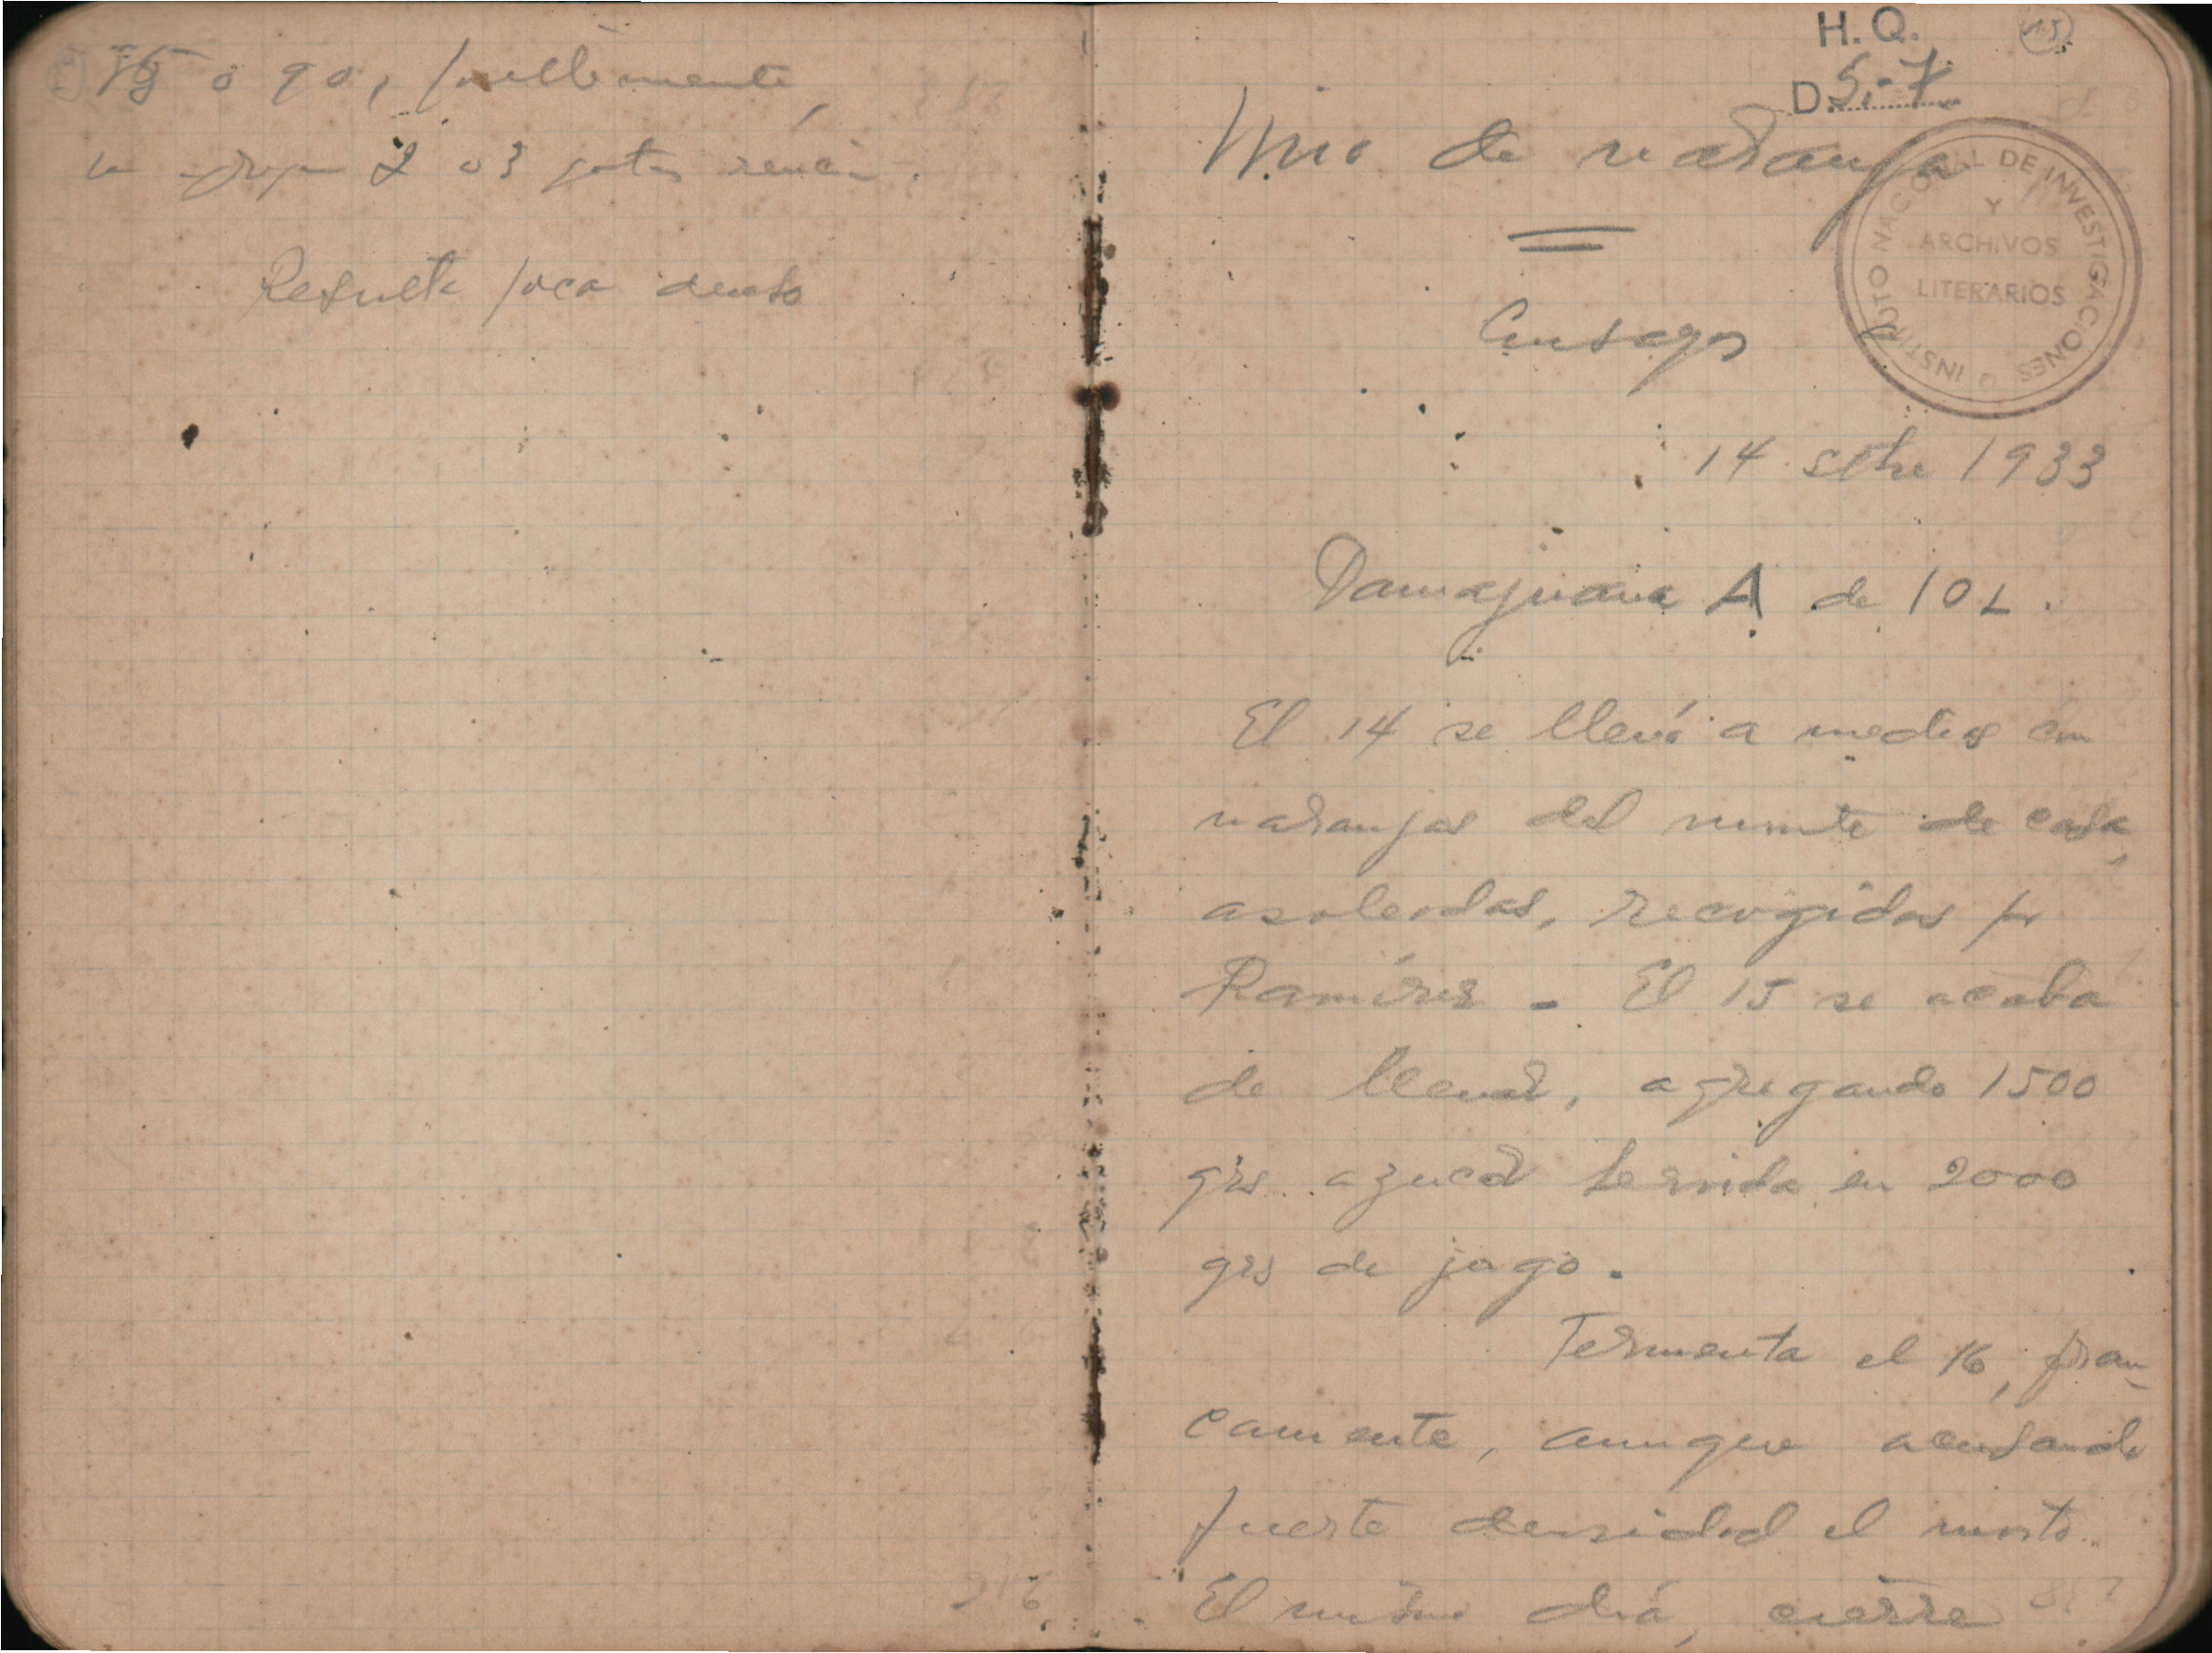 75 o 90, posiblemente,
2 o 3 gotas
Resulta poca densa
H.Q.
15
D.5.-7
Vino de naranja
INSTITUTO NACIONAL DE INVESTIGACIONES
Y
ARCHIVOS
LITERARIOS
Ensayos
14 stbre 1933
Damajuana A de 10 L.
El 14 se llenó a medias con
naranjas del monte de casa,
asoleadas, recogidas por
Ramírez - El 15 se acaba
de llenar, agregando 1500
grs. azucar hervida en 2000
grs de jugo.
Fermenta el 16, fran-
camente, aunque acusando
fuerte densidad el mosto.
El mismo dia, cierre